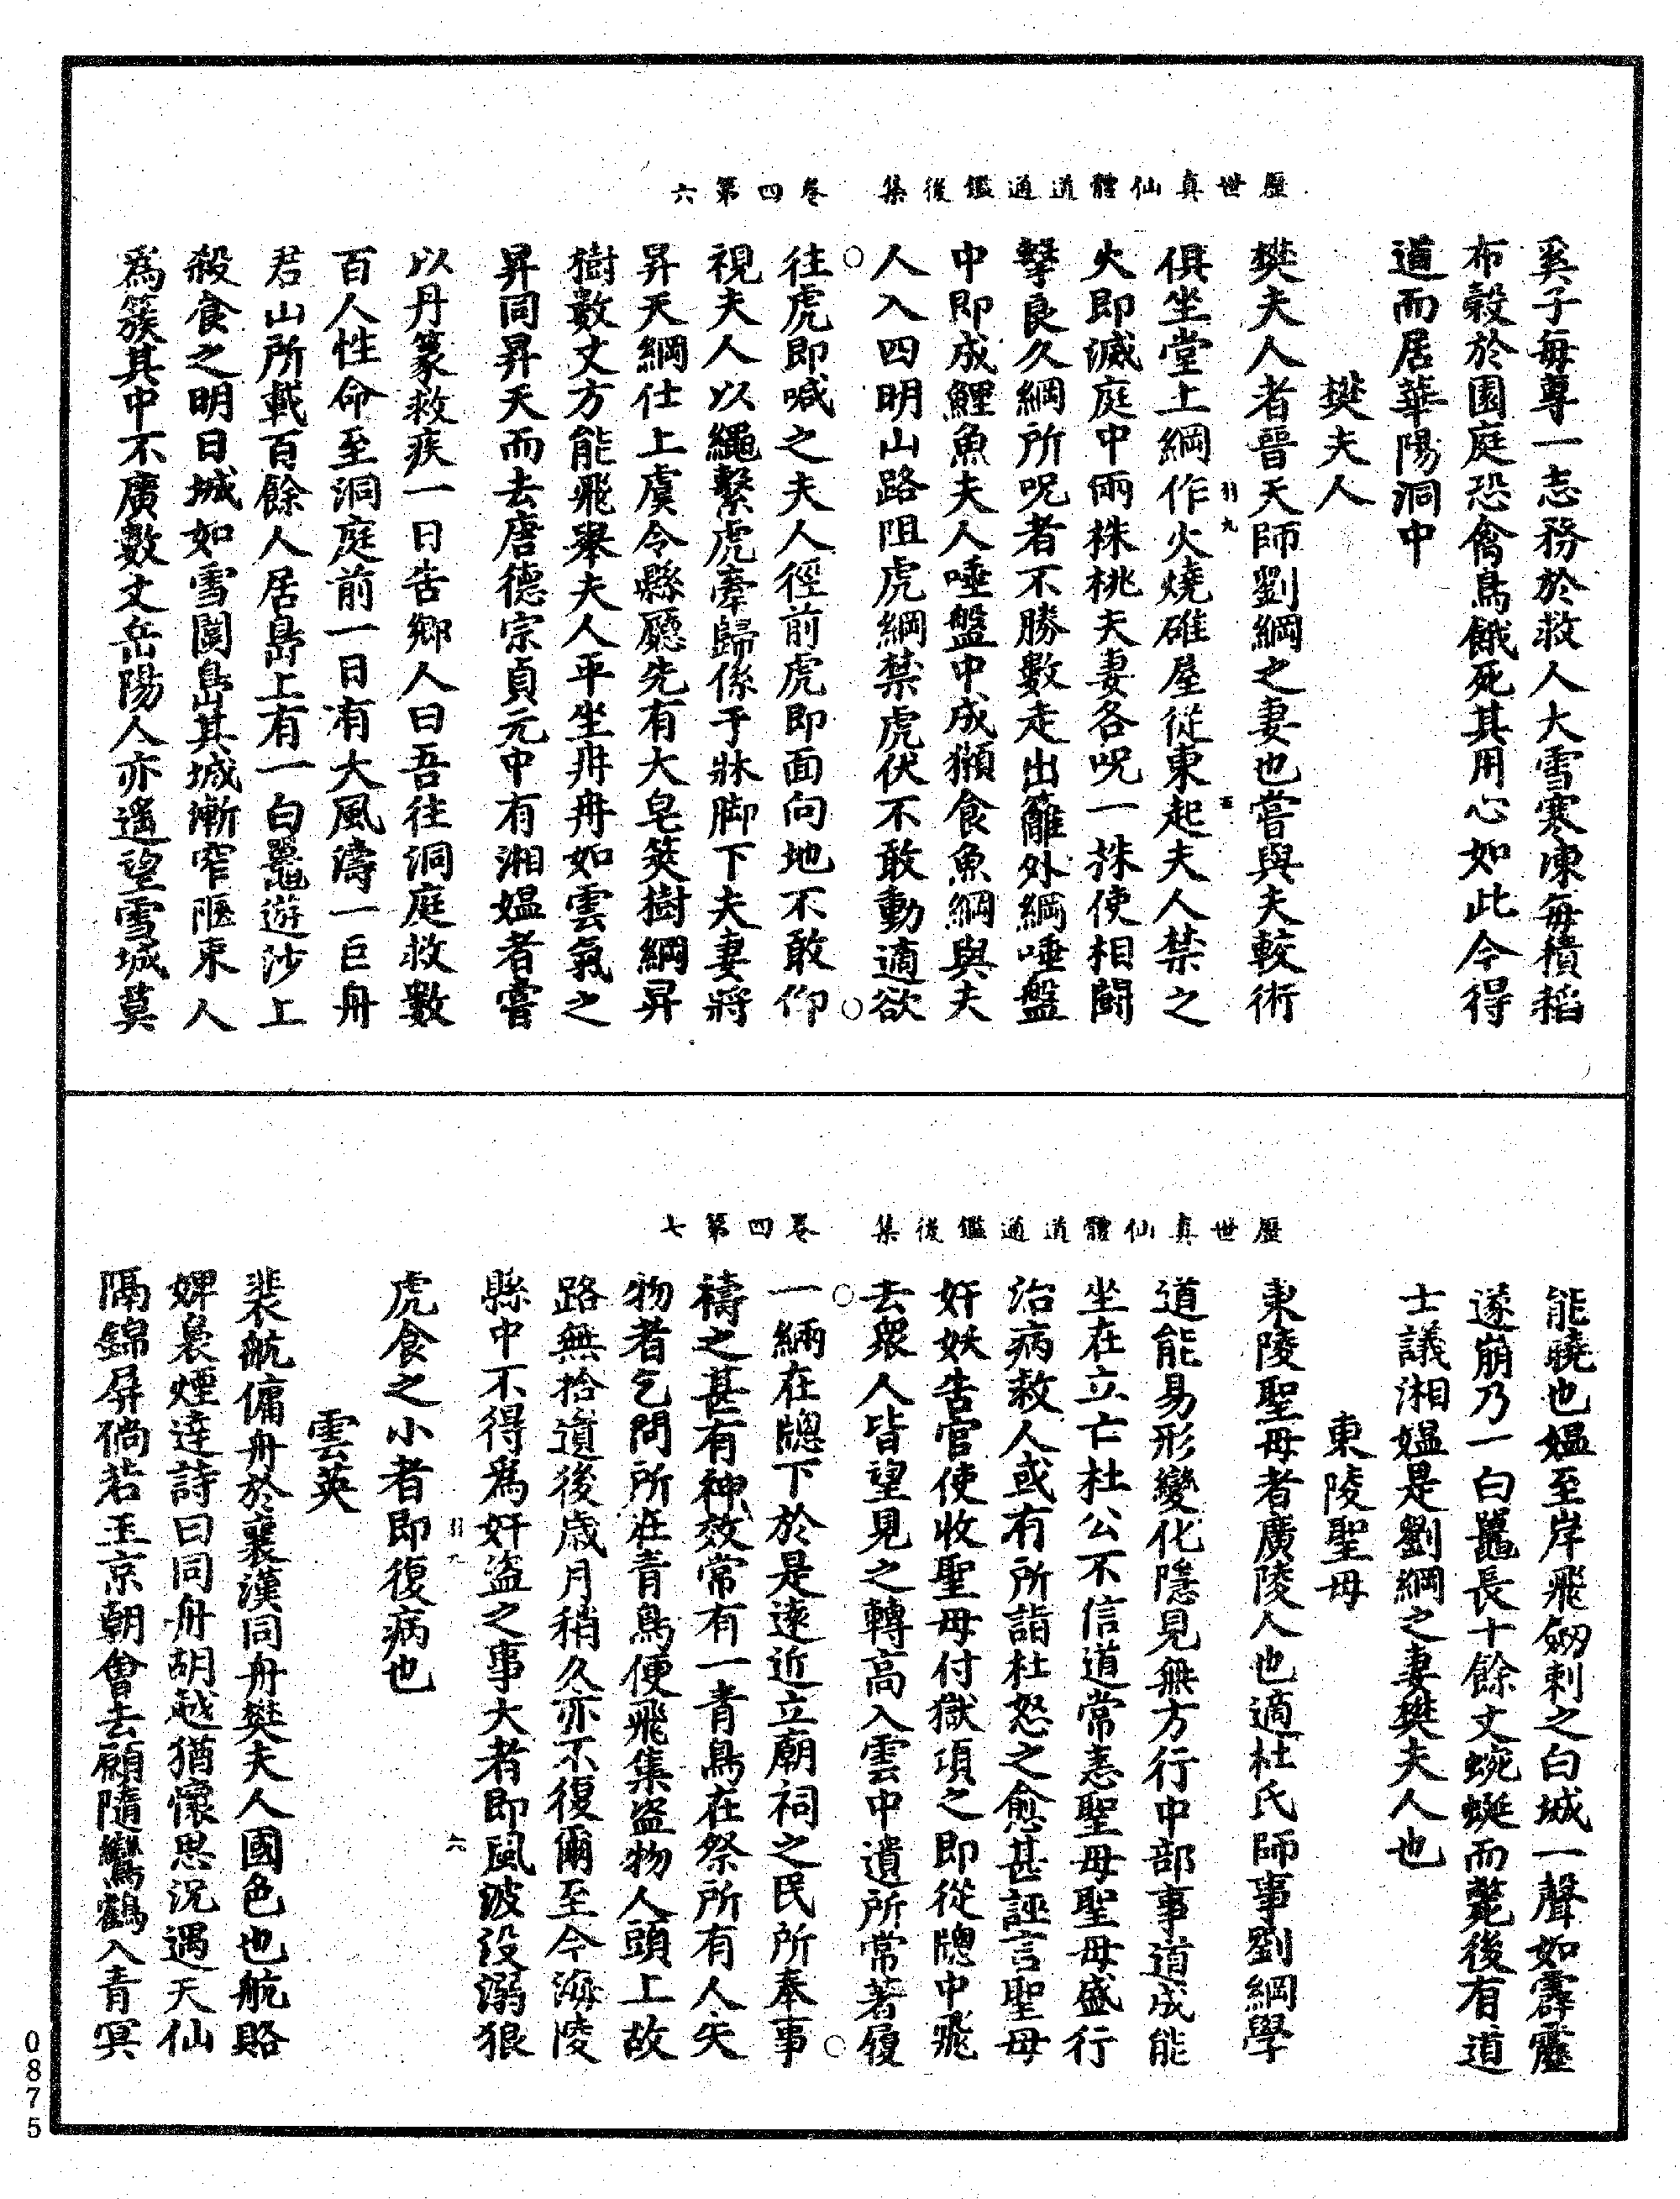 歷世真仙體道通鑑後集 卷四第六
奚子每專一志務於救人大雪寒凍每積稻
布穀於園庭恐禽鳥餓死其用心如此今得
道而居華陽洞中
樊夫人
樊夫人者晉天師劉綱之妻也嘗與夫較術
俱坐堂上綱作火燒碓屋從東起夫人禁之
火即滅庭中兩株桃夫妻各呪一株使相鬬
擊良久綱所呪者不勝數走出籬外綱唾盤
中即成鯉魚夫人唾盤中成獺食魚綱與夫
人入四明山路阻虎綱禁虎伏不敢動適欲
往虎即喊之夫人徑前虎即面向地不敢仰
視夫人以繩繫虎牽歸係于牀脚下夫妻將
昇天綱仕上虞令縣廳先有大皂莢樹綱昇
樹數丈方能飛舉夫人平坐冉冉如雲氣之
昇同昇天而去唐德宗貞元中有湘媼者嘗
以丹篆救疾一日告鄉人曰吾往洞庭救數
百人性命至洞庭前一日有大風濤一巨舟
君山所載百餘人居島上有一白鼉遊沙上
殺食之明日城如雪圍島其城漸窄匝束人
為簇其中不廣數丈岳陽人亦遙望雪城莫
歷世真仙體道通鑑後集 卷四第七
能曉也媼至岸飛劒刺之白城一聲如霹靂
遂崩乃一白鼉長十餘丈蜿蜒而斃後有道
士議湘媼是劉綱之妻樊夫人也
東陵聖母
東陵聖母者廣陵人也適杜氏師事劉綱學
道能易形變化隱見無方行中部事道成能
坐在立亡杜公不信道常恚聖母聖母盛行
治病救人或有所詣杜怒之愈甚誣言聖母
奸妖告官使收聖母付獄項之即從牕中飛
去衆人皆望見之轉高入雲中遺所常著履
一緉在牕下於是遠近立廟祠之民所奉事
禱之甚有神效常有一青鳥在祭所有人失
物者乞問所在青鳥便飛集盜物人頭上故
路無拾遺後歲月稍久亦不復爾至今海陵
縣中不得為奸盜之事大者即風波没溺狼
虎食之小者即復病也
雲英
裴航傭舟於襄漢同舟樊夫人國色也航賂
婢裊煙達詩曰同舟胡越猶懷思況遇天仙
隔錦屏倘若玉京朝會去願隨鸞鶴入青冥
0875